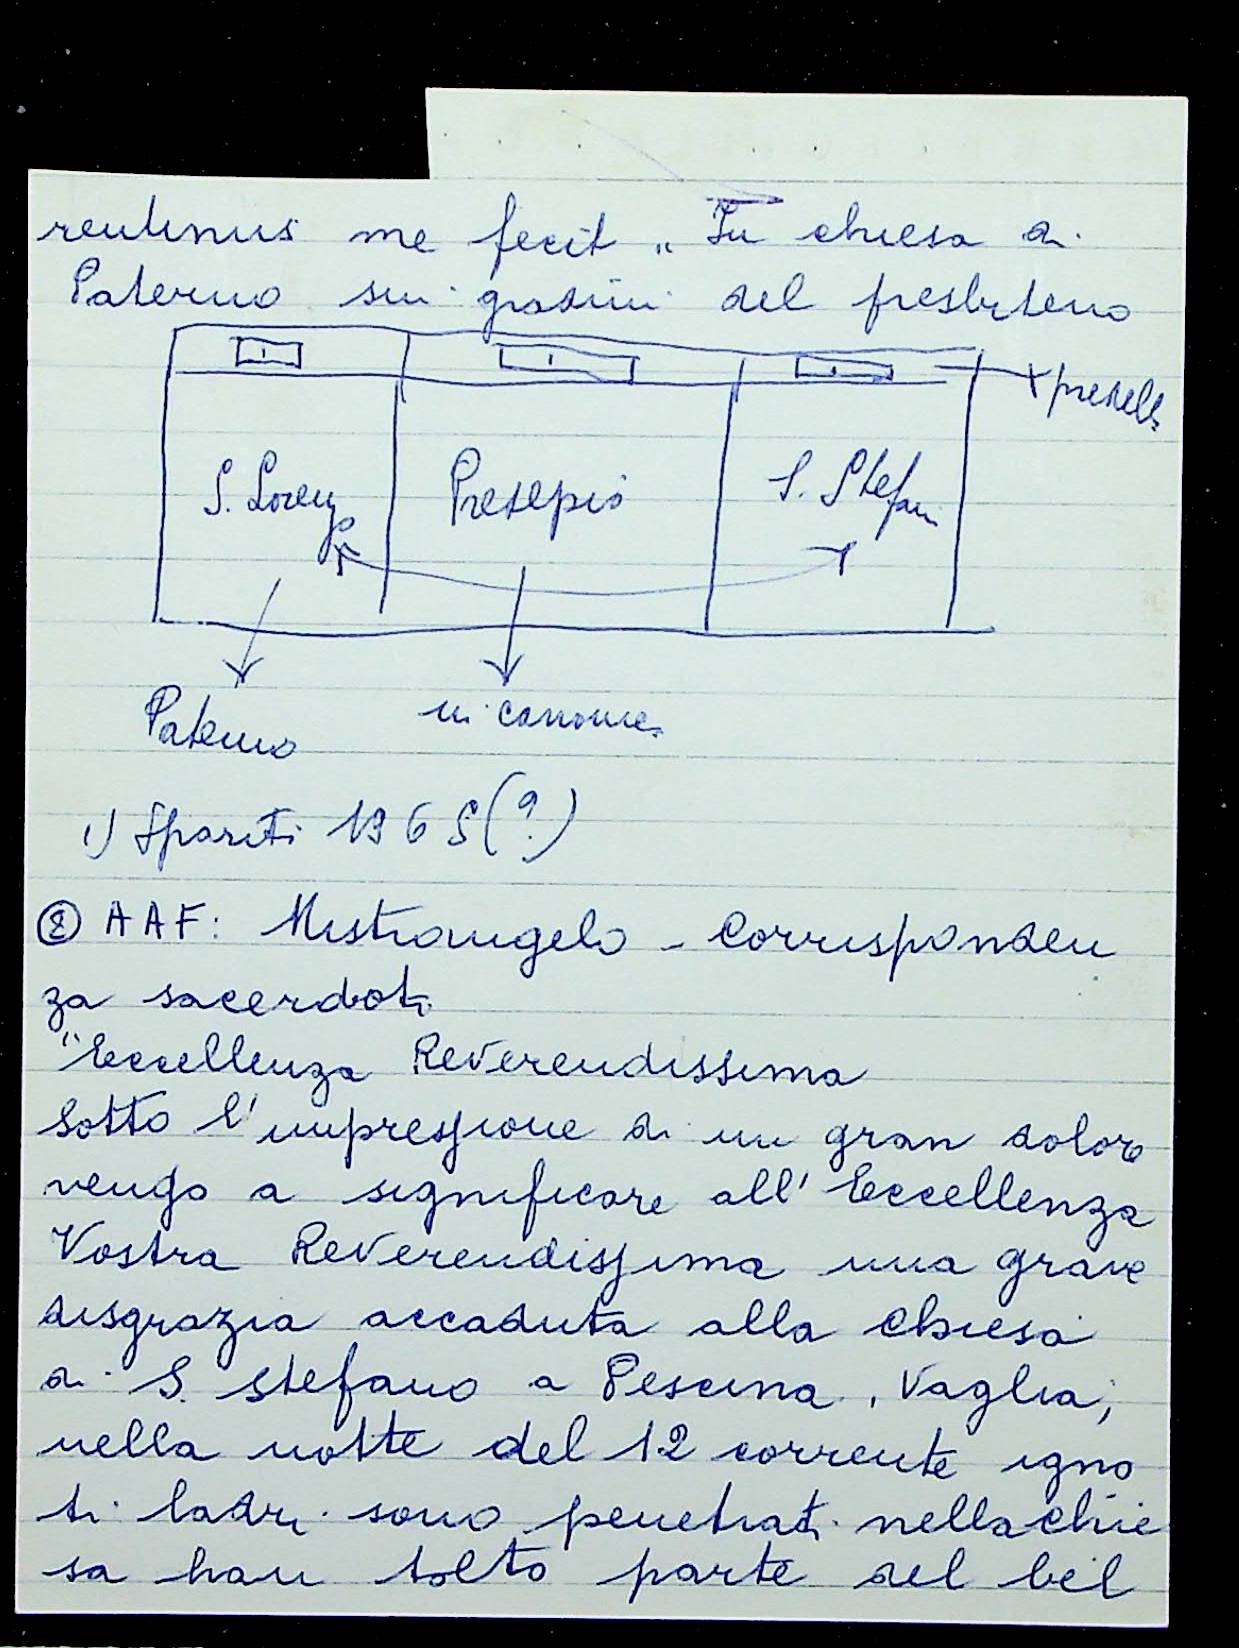 rentinus me fecit „ In chiesa di
Paterno sui gradini del presbiterio
predella
S. Lorenzo
Presepio
S. Stefano
Paterno
in canonica
1) Spariti 1965 (?)
② AAF: Mistrangelo - Corrisponden
za sacerdoti
"Eccellenza Reverendissima
Sotto l'impressione di un gran dolore
vengo a significare all'Eccellenza
Vostra Reverendissima una grave
disgrazia accaduta alla chiesa
di S. Stefano a Pescina, Vaglia,
nella notte del 12 corrente igno
ti ladri sono penetrati nella chie
sa han tolto parte del bel